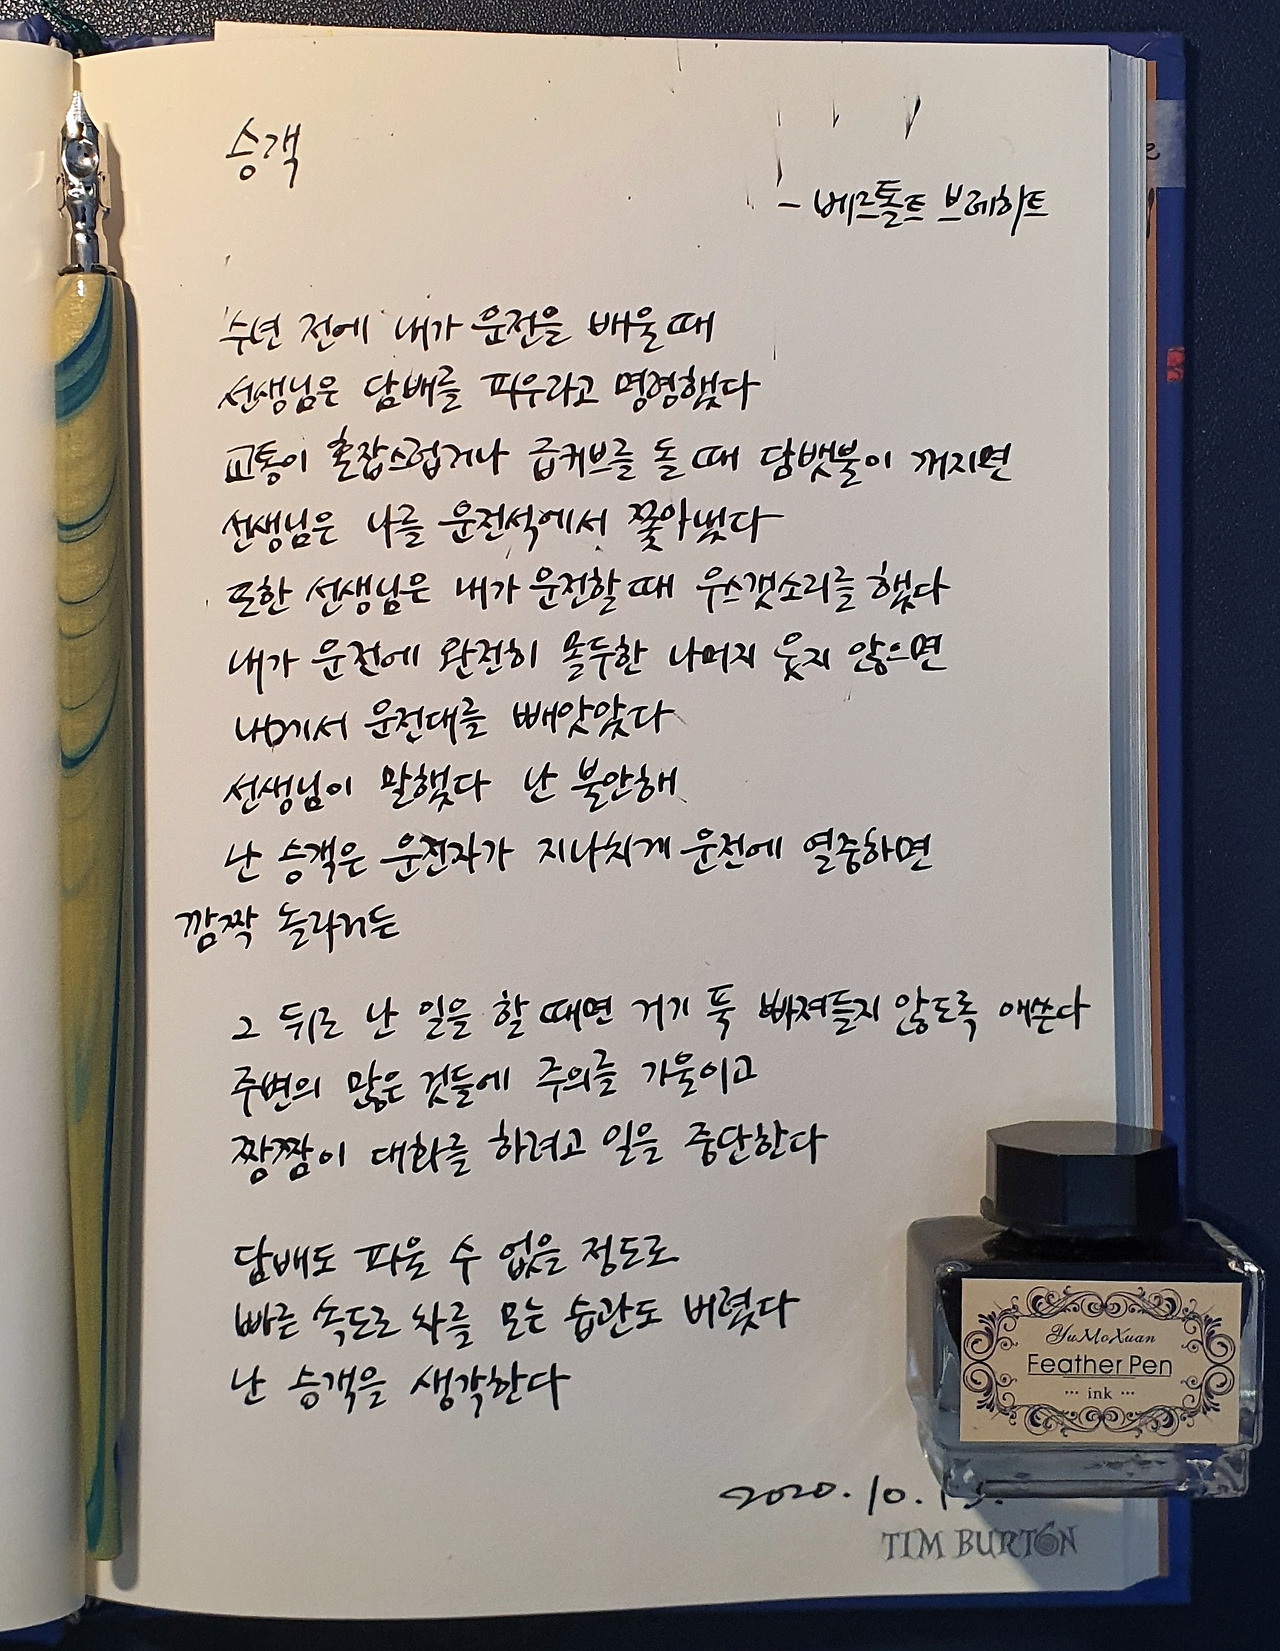 승객
- 베르톨트 브레히트
수년 전에 내가 운전을 배울 때
선생님은 담배를 피우라고 명령했다
교통이 혼잡스럽거나 급커브를 돌 때 담뱃불이 꺼지면
선생님은 나를 운전석에서 쫓아냈다
또한 선생님은 내가 운전할 때 우스갯소리를 했다
내가 운전에 완전히 몰두한 나머지 웃지 않으면
내게서 운전대를 빼앗았다
선생님이 말했다 난 불안해
난 승객은 운전자가 지나치게 운전에 열중하면
깜짝 놀라거든
그 뒤로 난 일을 할 때면 거기 푹 빠져들지 않도록 애쓴다
주변의 많은 것들에 주의를 기울이고
짬짬이 대화를 하려고 일을 중단한다
담배도 피울 수 없을 정도로
빠른 속도로 차를 모는 습관도 버렸다
난 승객을 생각한다
YuMoXuan
Feather Pen
... ink ...
2020. 10.
TIM BURTON